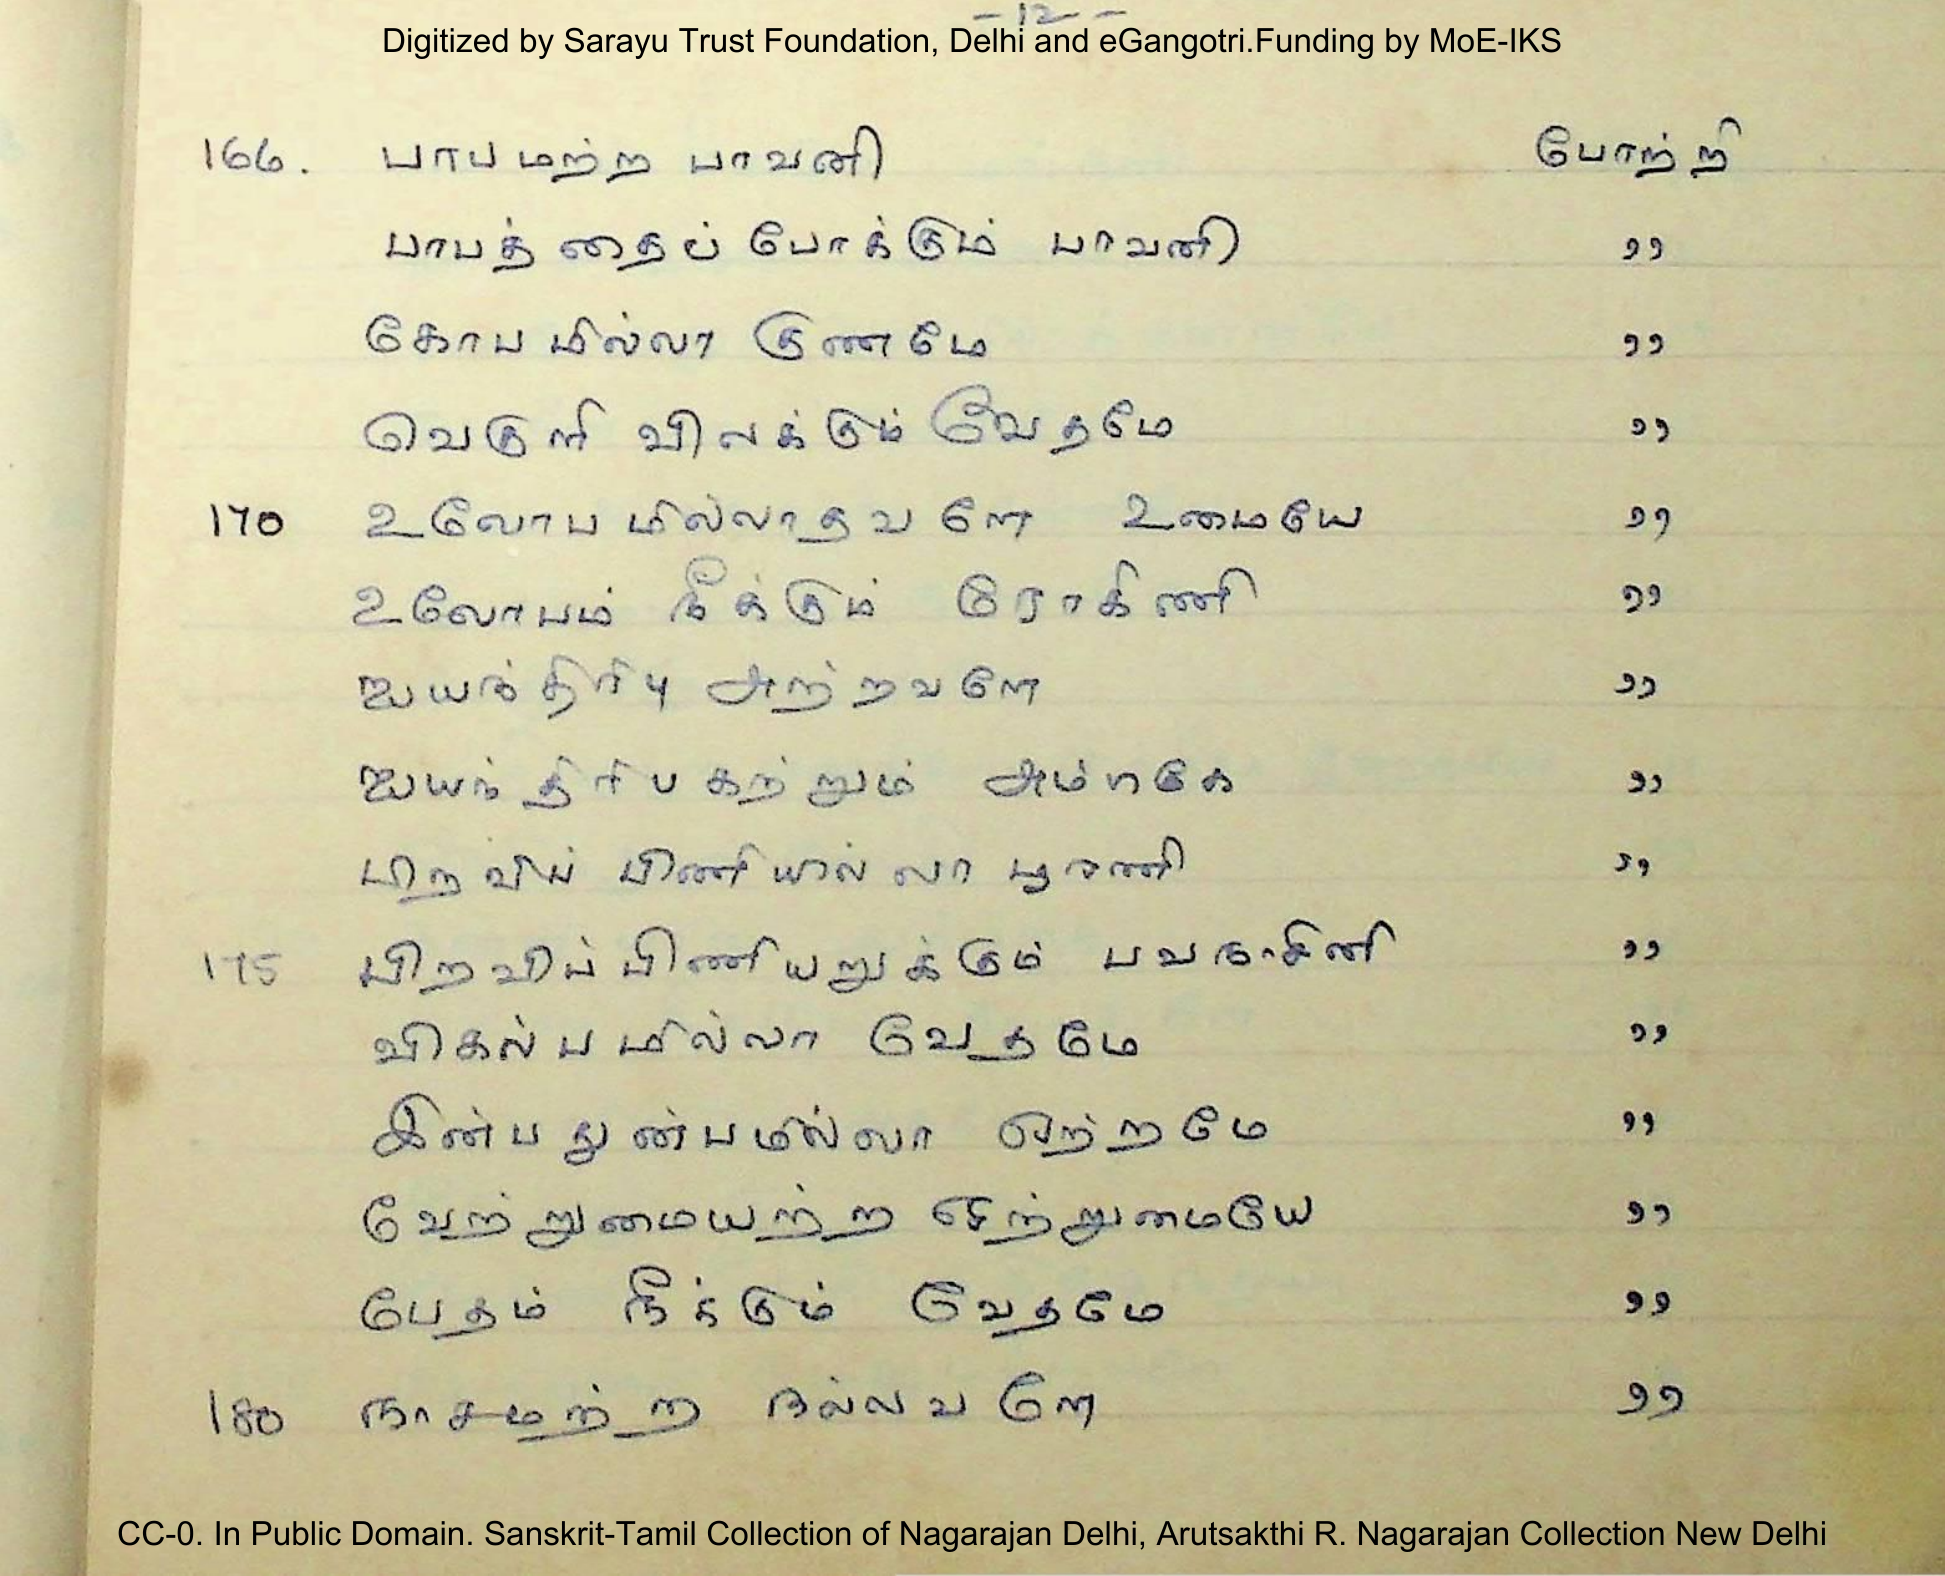 -12-
Digitized by Sarayu Trust Foundation, Delhi and eGangotri.Funding by MoE-IKS
166. பாபமற்ற பாவனி போற்றி
பாபத்தைப் போக்கும் பாவனி ,,
கோபமில்லா குணமே ,,
வெகுளி விலக்கும் வேதமே ,,
170 உலோபமில்லாதவளே உமையே ,,
உலோபம் நீக்கும் ரோகிணி ,,
ஐயந்திரிபு அற்றவளே ,,
ஐயந்திரிபகற்றும் அம்பிகே ,,
பிறவிப் பிணியில்லா பூரணி ,,
175 பிறவிப்பிணியறுக்கும் பவநாசினி ,,
விகல்பமில்லா வேதமே ,,
இன்பதுன்பமில்லா ஏற்றமே ,,
வேற்றுமையற்ற ஒற்றுமையே ,,
பேதம் நீக்கும் வேதமே ,,
180 நாசமற்ற நல்லவளே ,,
CC-0. In Public Domain. Sanskrit-Tamil Collection of Nagarajan Delhi, Arutsakthi R. Nagarajan Collection New Delhi